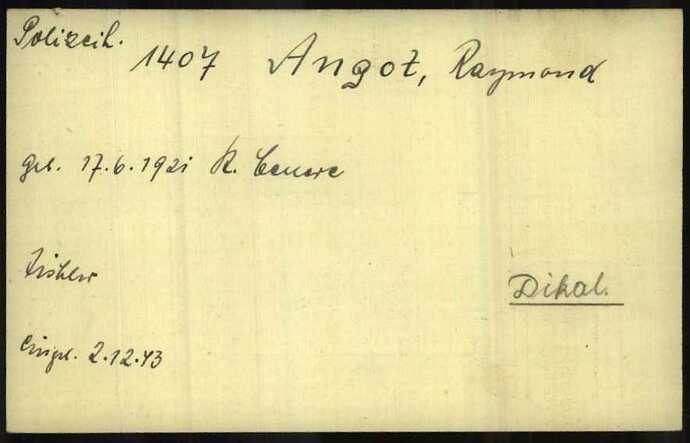 Polizeih.
1407 Angot, Raymond
geb. 17.6.1921
Tischler
Dikal.
Eingel. 2.12.43